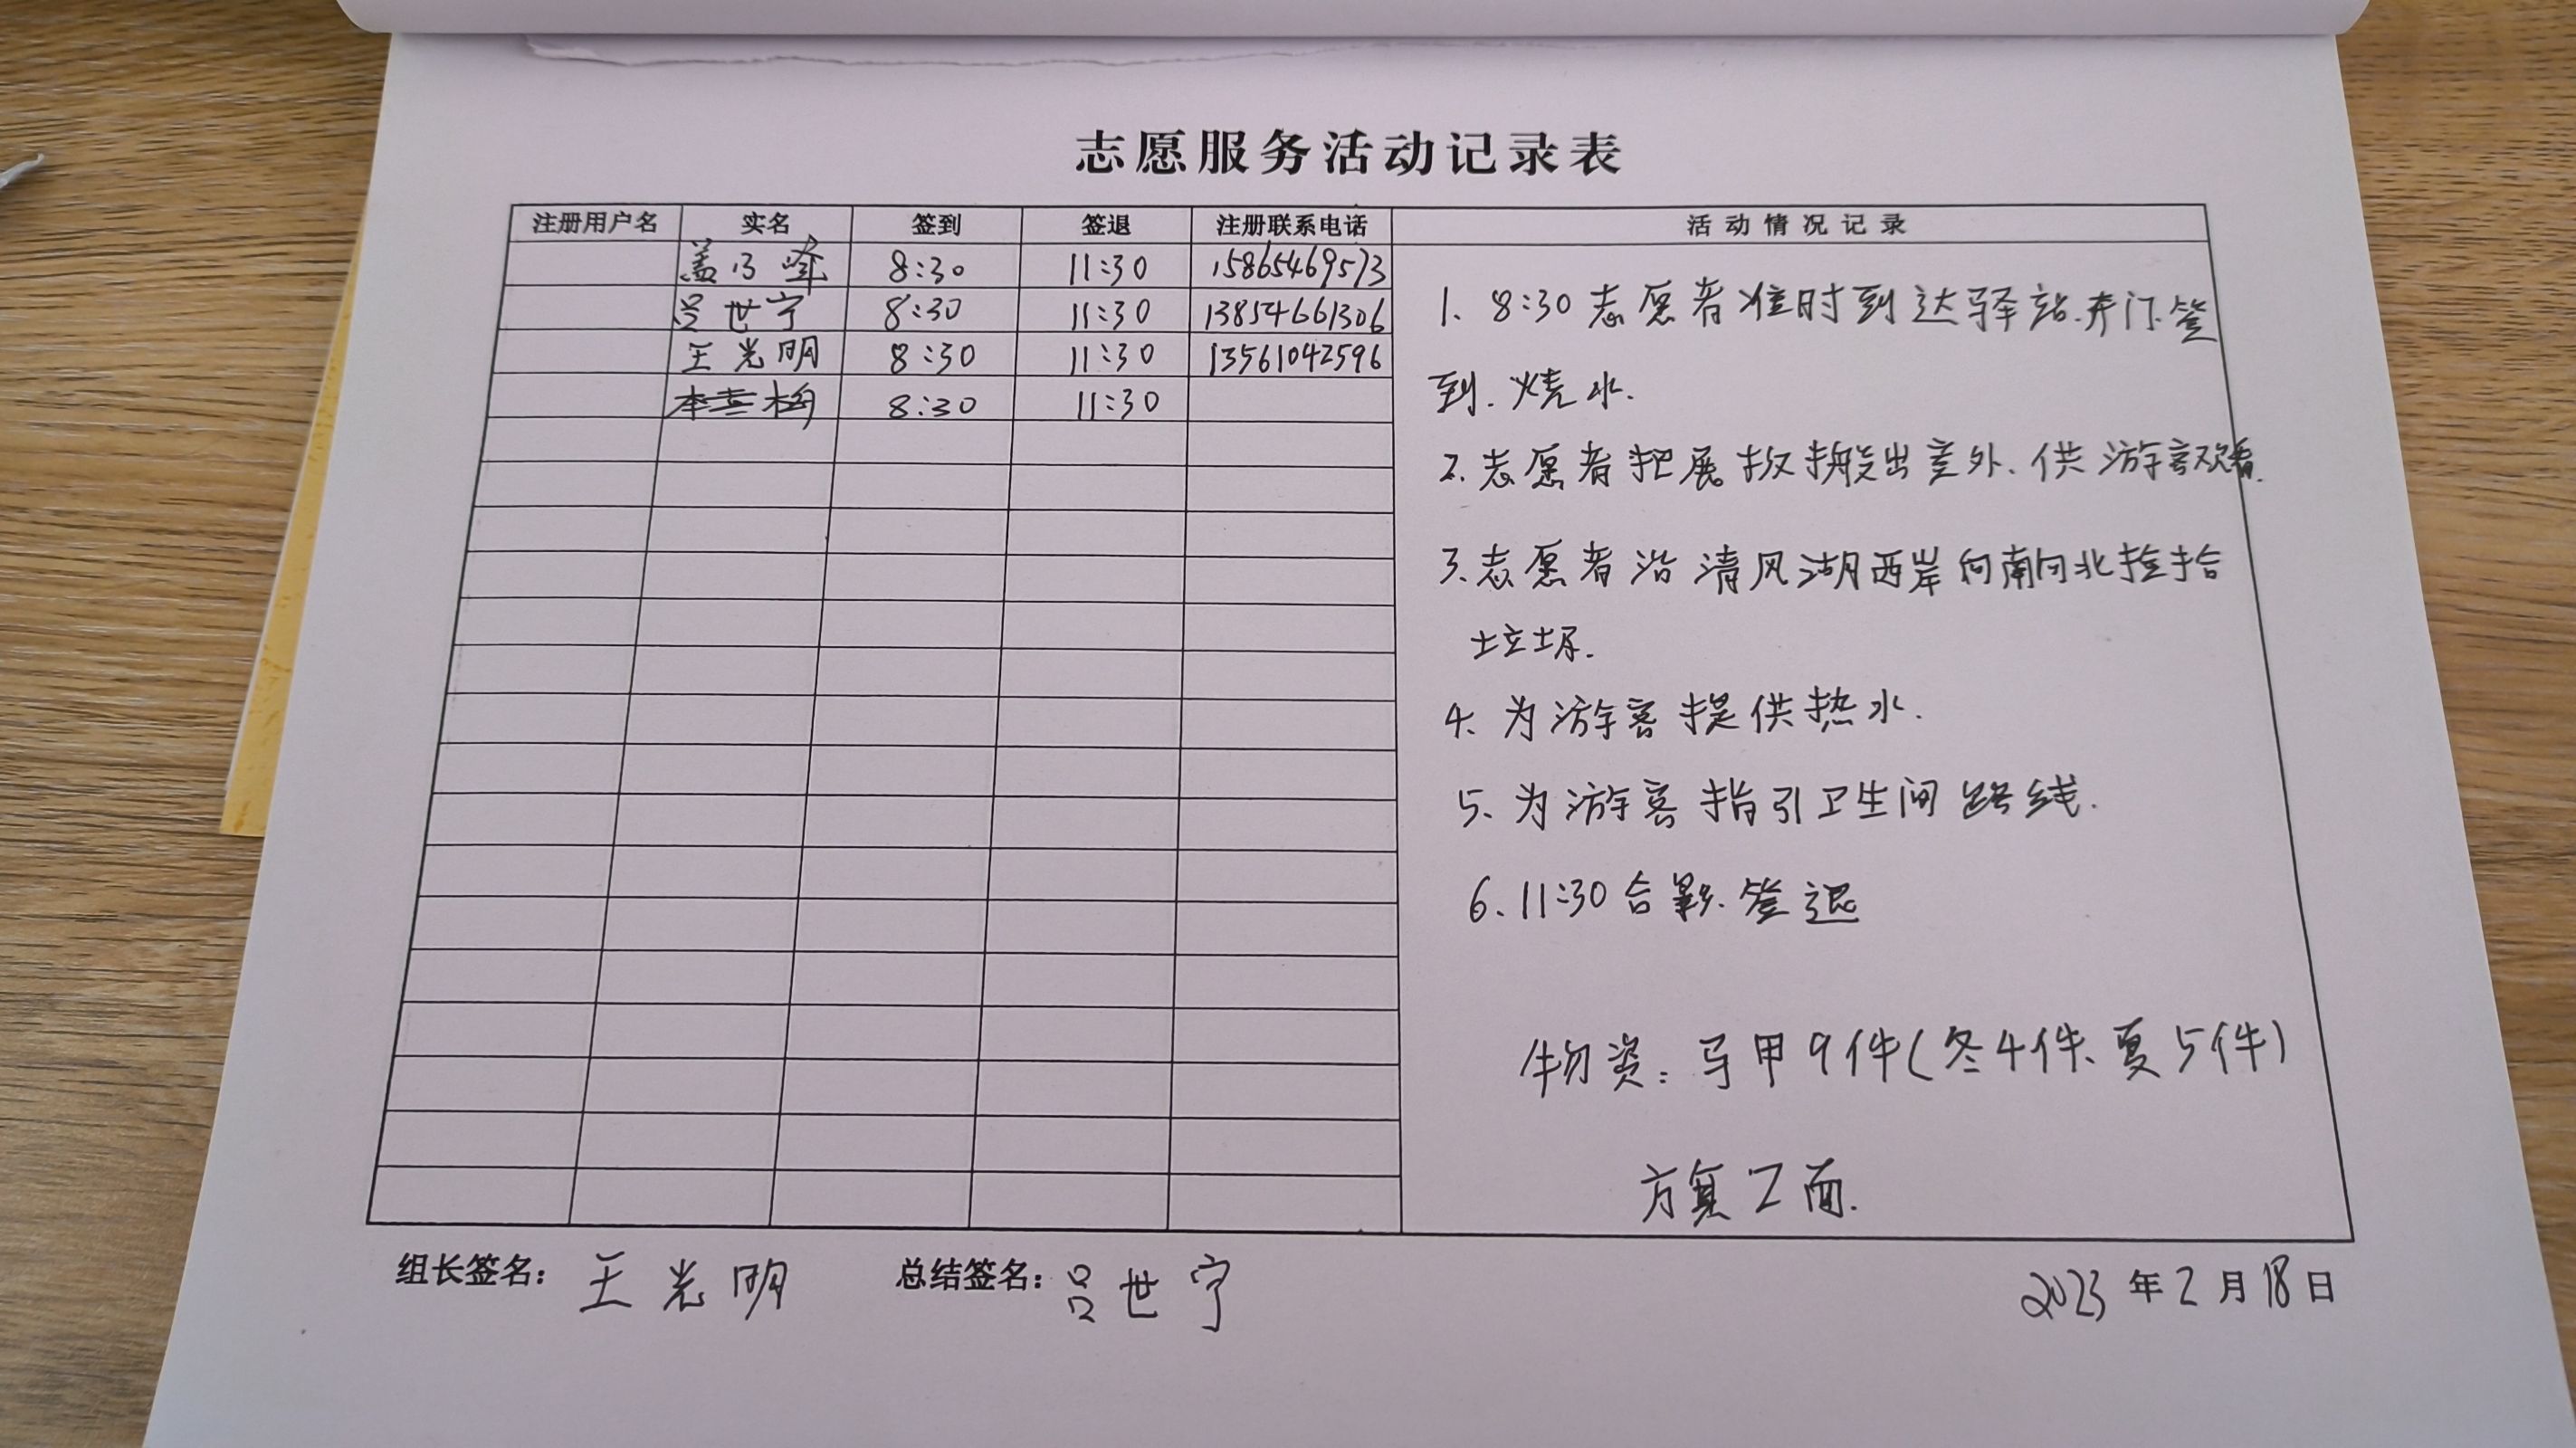 志愿服务活动记录表
注册用户名 实名 签到 签退 注册联系电话 活动情况记录
盖乃峰 8:30 11:30 15865469573
吕世宁 8:30 11:30 13854661306
王光明 8:30 11:30 13561042596
李喜梅 8:30 11:30
1、8:30志愿者准时到达驿站.开门.签
到.烧水.
2.志愿者把展板搬出室外、供游客观看.
3.志愿者沿清风湖西岸向南向北捡拾
垃圾.
4、为游客提供热水.
5、为游客指引卫生间路线.
6、11:30合影.签退
物资：马甲9件(冬4件、夏5件)
方旗2面.
组长签名：王光明 总结签名：吕世宁 2023年2月18日